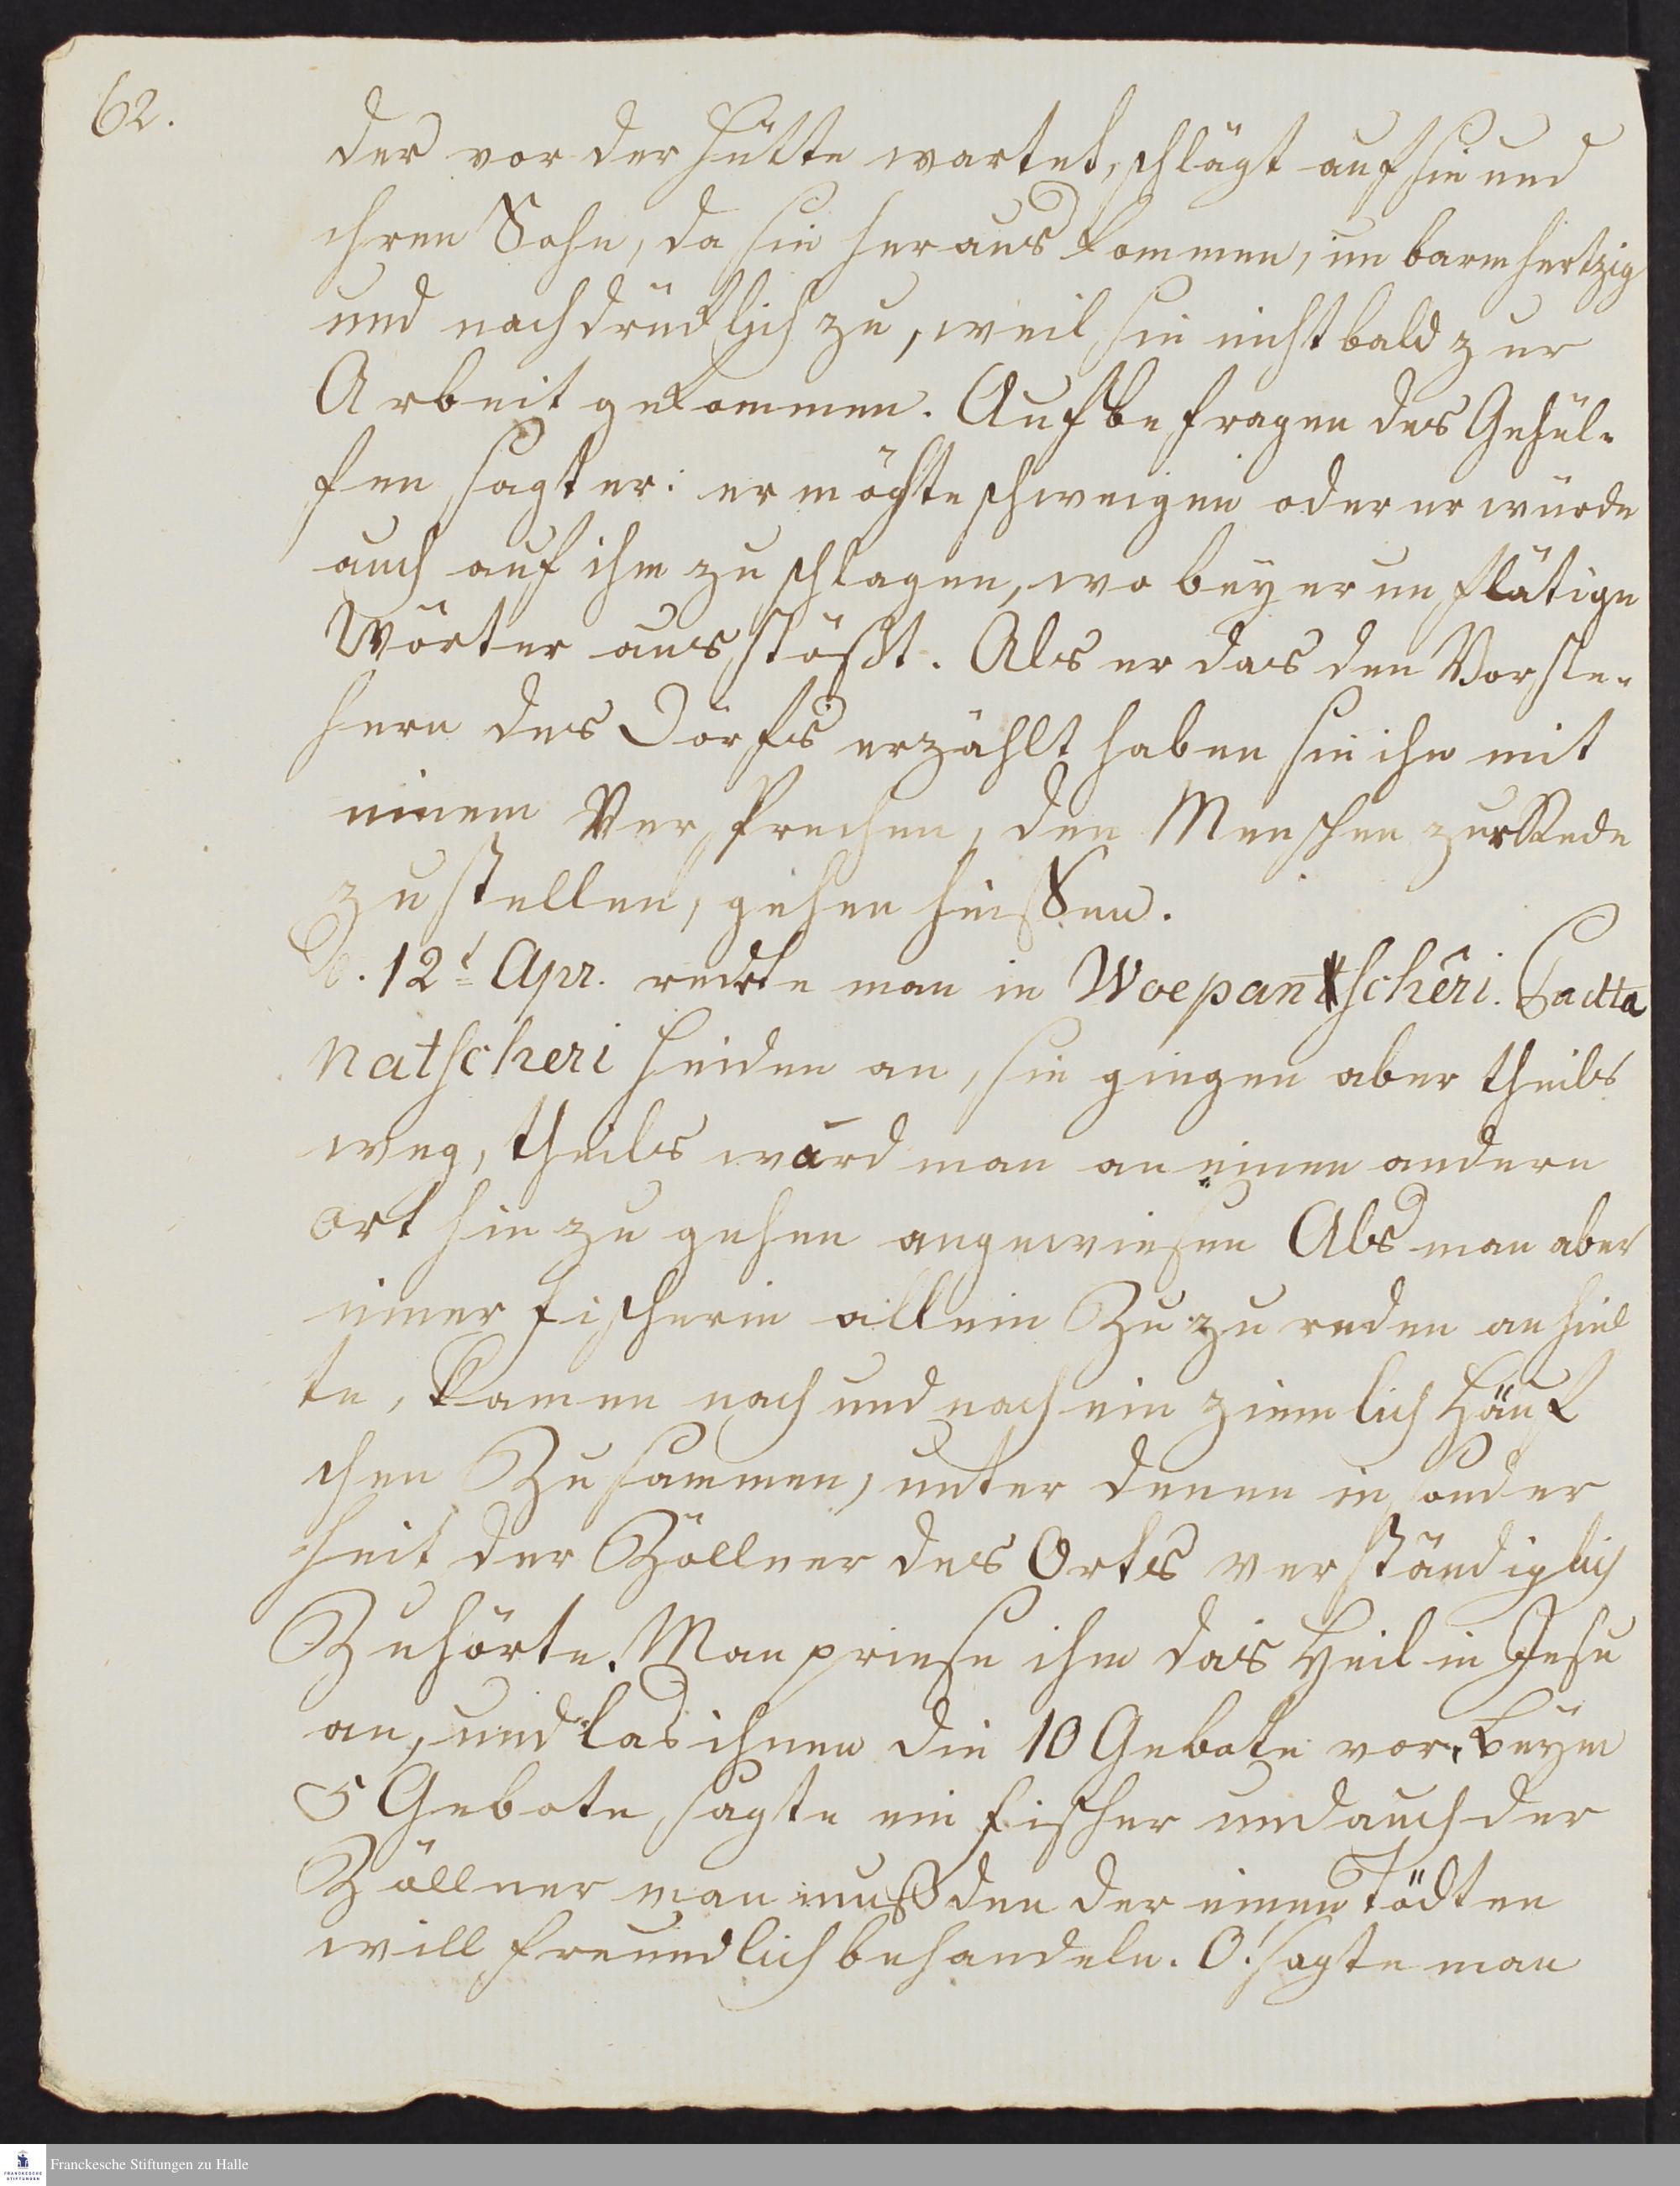 62.
der vor der Hütte wartet, schlägt auf sie und
ihren Sohn, da sie heraus kommen, un barmhertzig
und nachdrücklich zu, weil sie nicht bald zur
Arbeit gekommen. Auf befragen des Gehül-
fen sagt er: er möchte schweigen oder er würde
auch auf ihm zu schlagen, wo bey er un flätige
Wörter aus stößt. Als er das den Vorste-
hern des Dörfs erzählt haben sie ihn mit
einem Ver sprechen, den Menschen zur Rede
zu stellen, gehen heißen.
D. 12t Apr. redete man in Woepantschêri.
natscheri Heiden an, sie giengen aber theils
weg, theils ward man an einen andern
Ort hin zu gehen angewiesen Als man aber
einer Fischerin allein Zu zu reden an hiel
te, kamen nach und nach ein ziemlich Häuf
chen Zusammen, unter denen in sonder
heit der Zöllner des Orts verständiglich
Zuhörte. Man priese ihm das Heil in Jesu
an, und las ihnen die 10 Gebote vor. Beym
5 Gebote sagte ein Fischer und auch der
Zöllner man muß den der einen Tödten
will freundlich behandeln. O! sagte man
Franckesche Stiftungen zu Halle
FRANCKESCHE
STIFTUNGEN